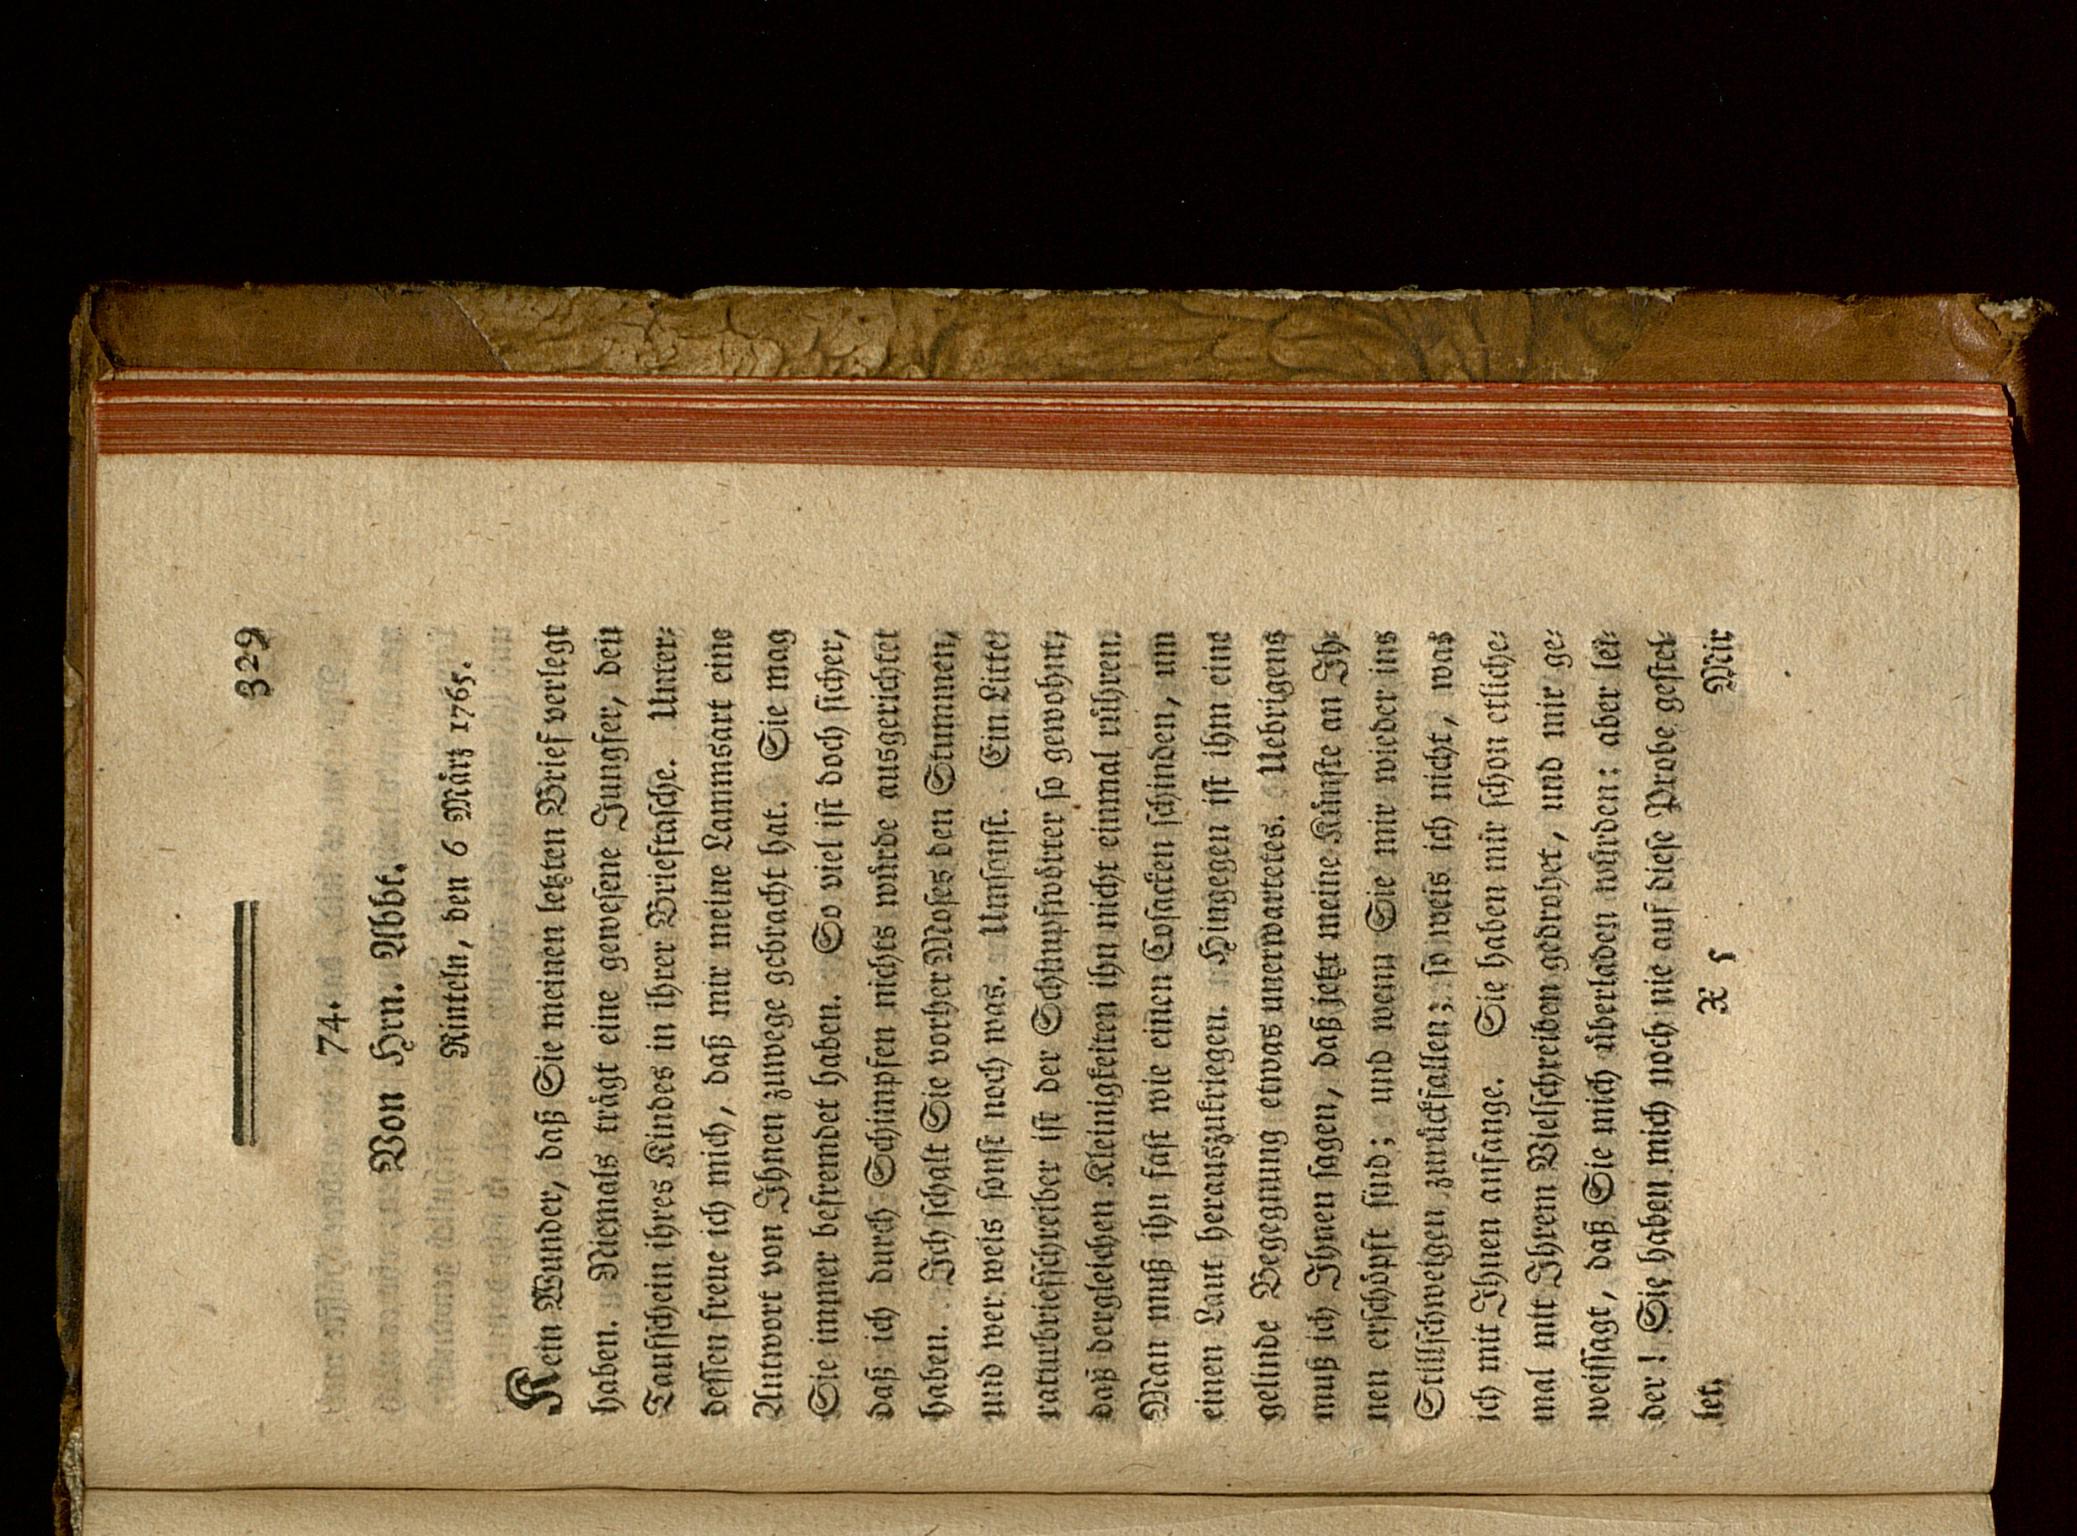 329
74.
Von Hrn. Abbt.
Rinteln, den 6 März 1765.
Kein Wunder, daß Sie meinen letzten Brief verlegt
haben. Niemals trägt eine gewesene Jungfer, den
Taufschein ihres Kindes in ihrer Brieftasche. Unter-
dessen freue ich mich, daß mir meine Lammsart eine
Antwort von Ihnen zuwege gebracht hat. Sie mag
Sie immer befremdet haben. So viel ist doch sicher,
daß ich durch Schimpfen nichts würde ausgerichtet
haben. Ich schalt Sie vorher Moses den Stummen,
und wer weis sonst noch was. Umsonst. Ein Litte-
raturbriefschreiber ist der Schimpfwörter so gewohnt,
daß dergleichen Kleinigkeiten ihn nicht einmal rühren.
Man muß ihn fast wie einen Cosacken schinden, um
einen Laut herauszukriegen. Hingegen ist ihm eine
gelinde Begegnung etwas unerwartetes. Uebrigens
muß ich Ihnen sagen, daß jetzt meine Künste an Ih-
nen erschöpft sind; und wenn Sie mir wieder ins
Stillschweigen zurückfallen; so weis ich nicht, was
ich mit Ihnen anfange. Sie haben mir schon etliche-
mal mit Ihrem Vielschreiben gedrohet, und mir ge-
weissagt, daß Sie mich überladen würden: aber lei-
der! Sie haben mich noch nie auf diese Probe gestel-
let.
X 5
Mir